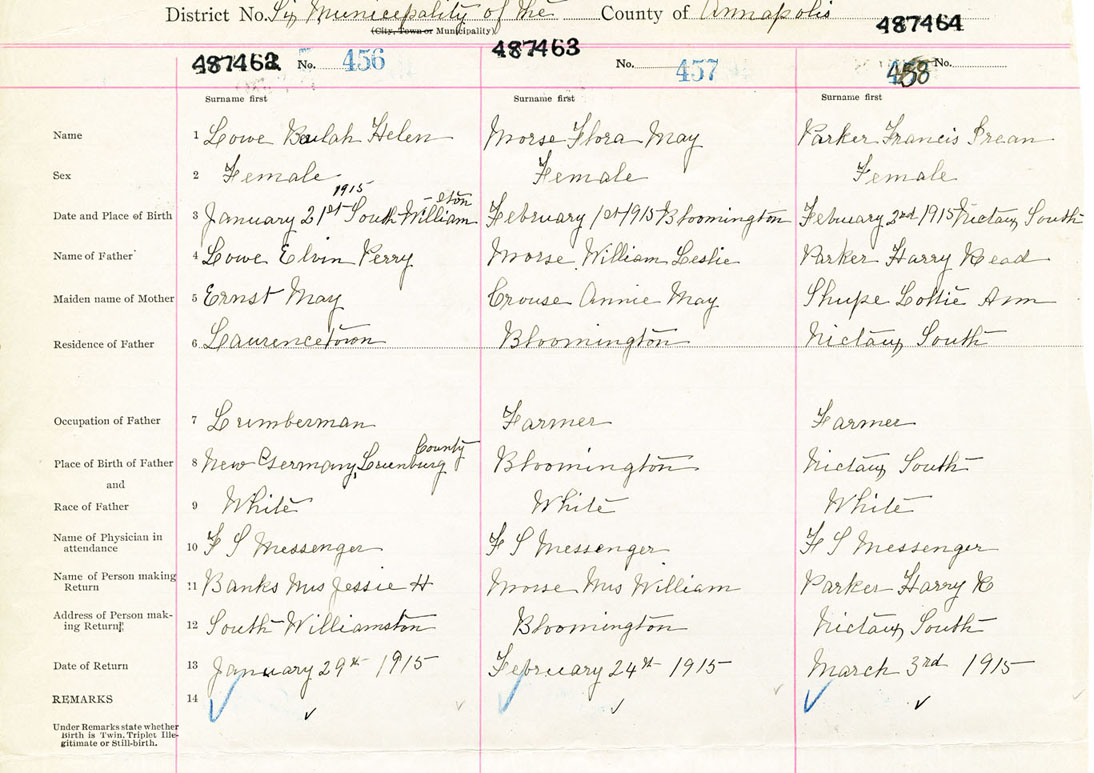 District No. Six Municipality of the County of Annapolis
(City, Town or Municipality)
487462 No. 456 487463 No. 457 487464 458 No.
Surname first Surname first Surname first
Name 1 Lowe Beulah Helen Morse Flora May Parker Francis
Sex 2 Female Female Female
1915 eton
Date and Place of Birth 3 January 21st South William- February 1st 1915 Bloomington Febuary 2nd 1915 Nictaux South
Name of Father 4 Lowe Elvin Perry Morse William Leslie Parker Harry Read
Maiden name of Mother 5 Ernst May Crouse Annie May Shupe Lottie Ann
Residence of Father 6 Laurencetown Bloomington Nictaux South
Occupation of Father 7 Lumberman Farmer Farmer
County
Place of Birth of Father 8 New Germany, Lunenburg Bloomington Nictaux South
and
Race of Father 9 White White White
Name of Physician in
attendance 10 F S Messenger F S Messenger F S Messenger
Name of Person making
Return 11 Banks Mrs Jessie H Morse Mrs William Parker Harry R
Address of Person mak-
ing Return 12 South Williamston Bloomington Nictaux South
Date of Return 13 January 29th 1915 February 24th 1915 March 3rd 1915
REMARKS 14
Under Remarks state whether
Birth is Twin, Triplet Ille-
gitimate or Still-birth.